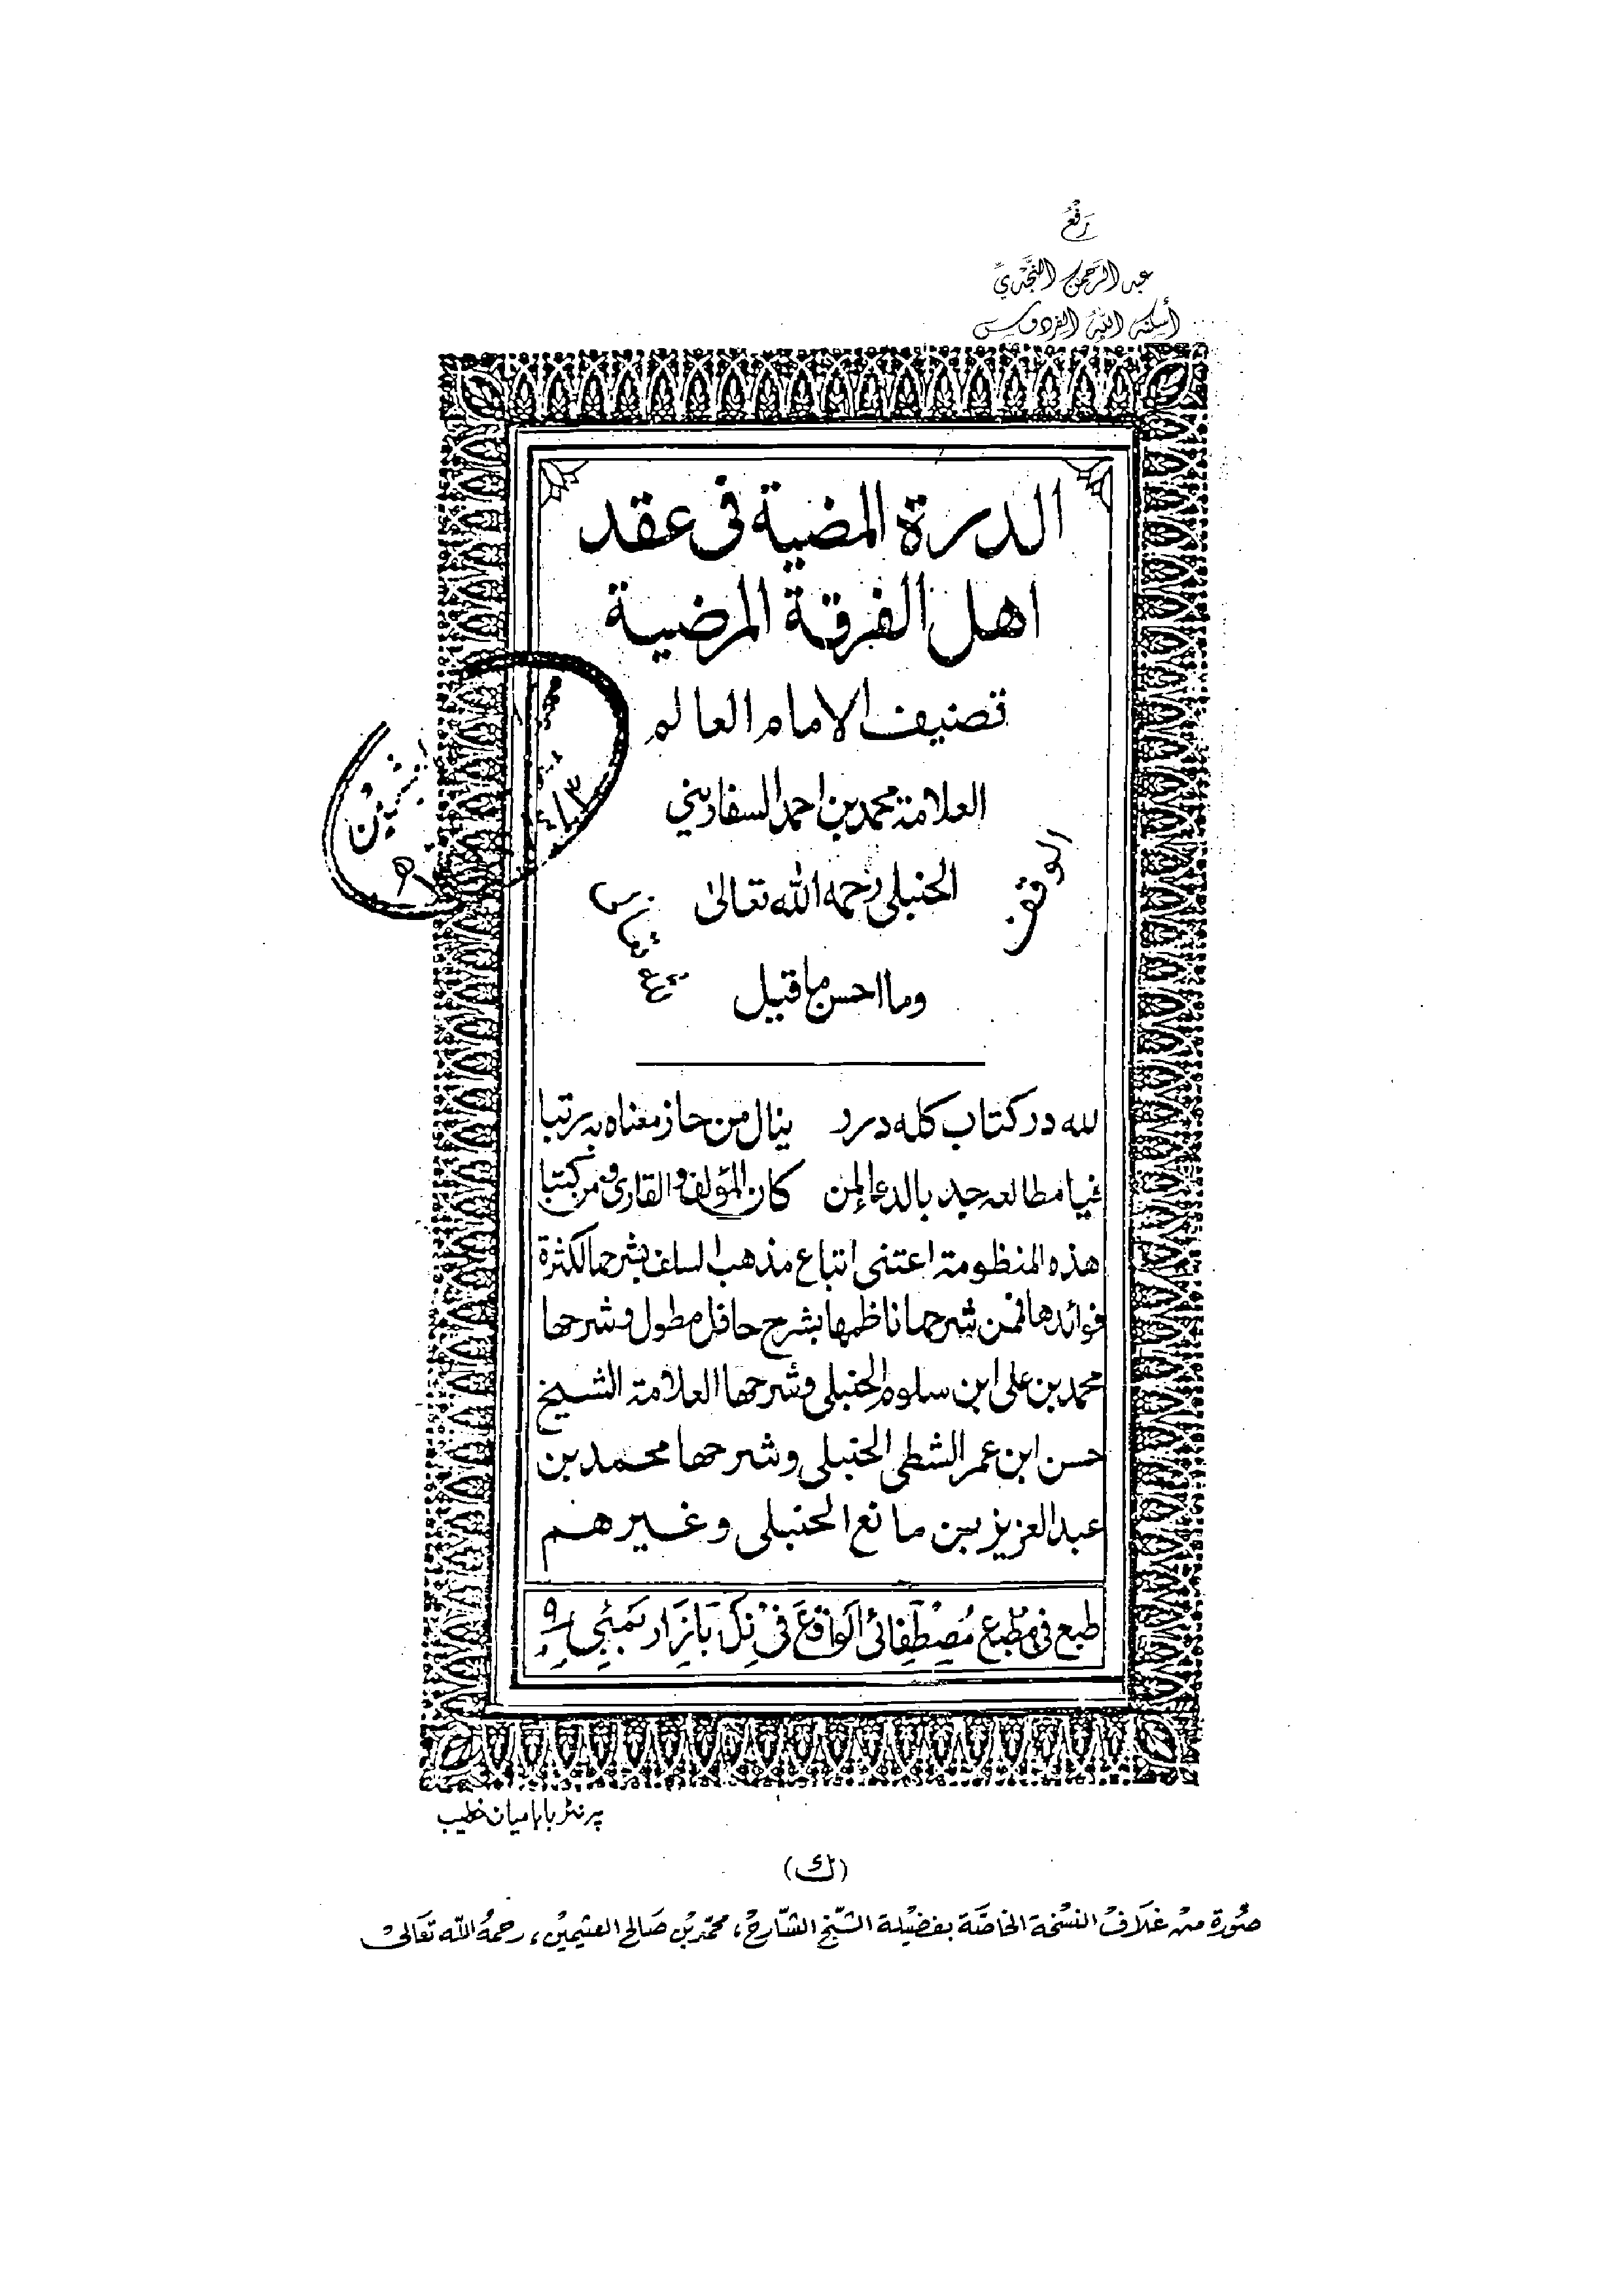 رَفْعُ
عبد الرَّحمن النَّجْدِيّ
أسكنه اللهُ الفردوس
الدرة المضية فى عقد
اهل الفرقة المرضية
تصنيف الامام العالم
العلامة محمد بن احمد السفاريني
الحنبلى رحمه الله تعالىٰ
وما احسن ما قيل
لله در كتاب كله درر ينال من حاز معناه به رتبا
فيا مطالعه جد بالدعاء لمن كان المؤلف والقارى ومن كتبا
هذه المنظومة اعتنى اتباع مذهب السلف بشرحها لكثرة
فوائدها فمن شرحها ناظمها بشرح حافل مطول وشرحها
محمد بن على ابن سلوم الحنبلى وشرحها العلامة الشيخ
حسن ابن عمر الشطى الحنبلى وشرحها محمد بن
عبد العزيز بن مانع الحنبلى وغيرهم
طبع فى مطبع مصطفائى الواقع فى نل بازار بمبئى ٩
پرنٹر بابا ميان خطيب
(ك)
صُورة من غلاف النسخة الخاصّة بفضيلة الشيخ الشارح، محمّد بن صَالح العثيمين، رحمهُ الله تعَالى